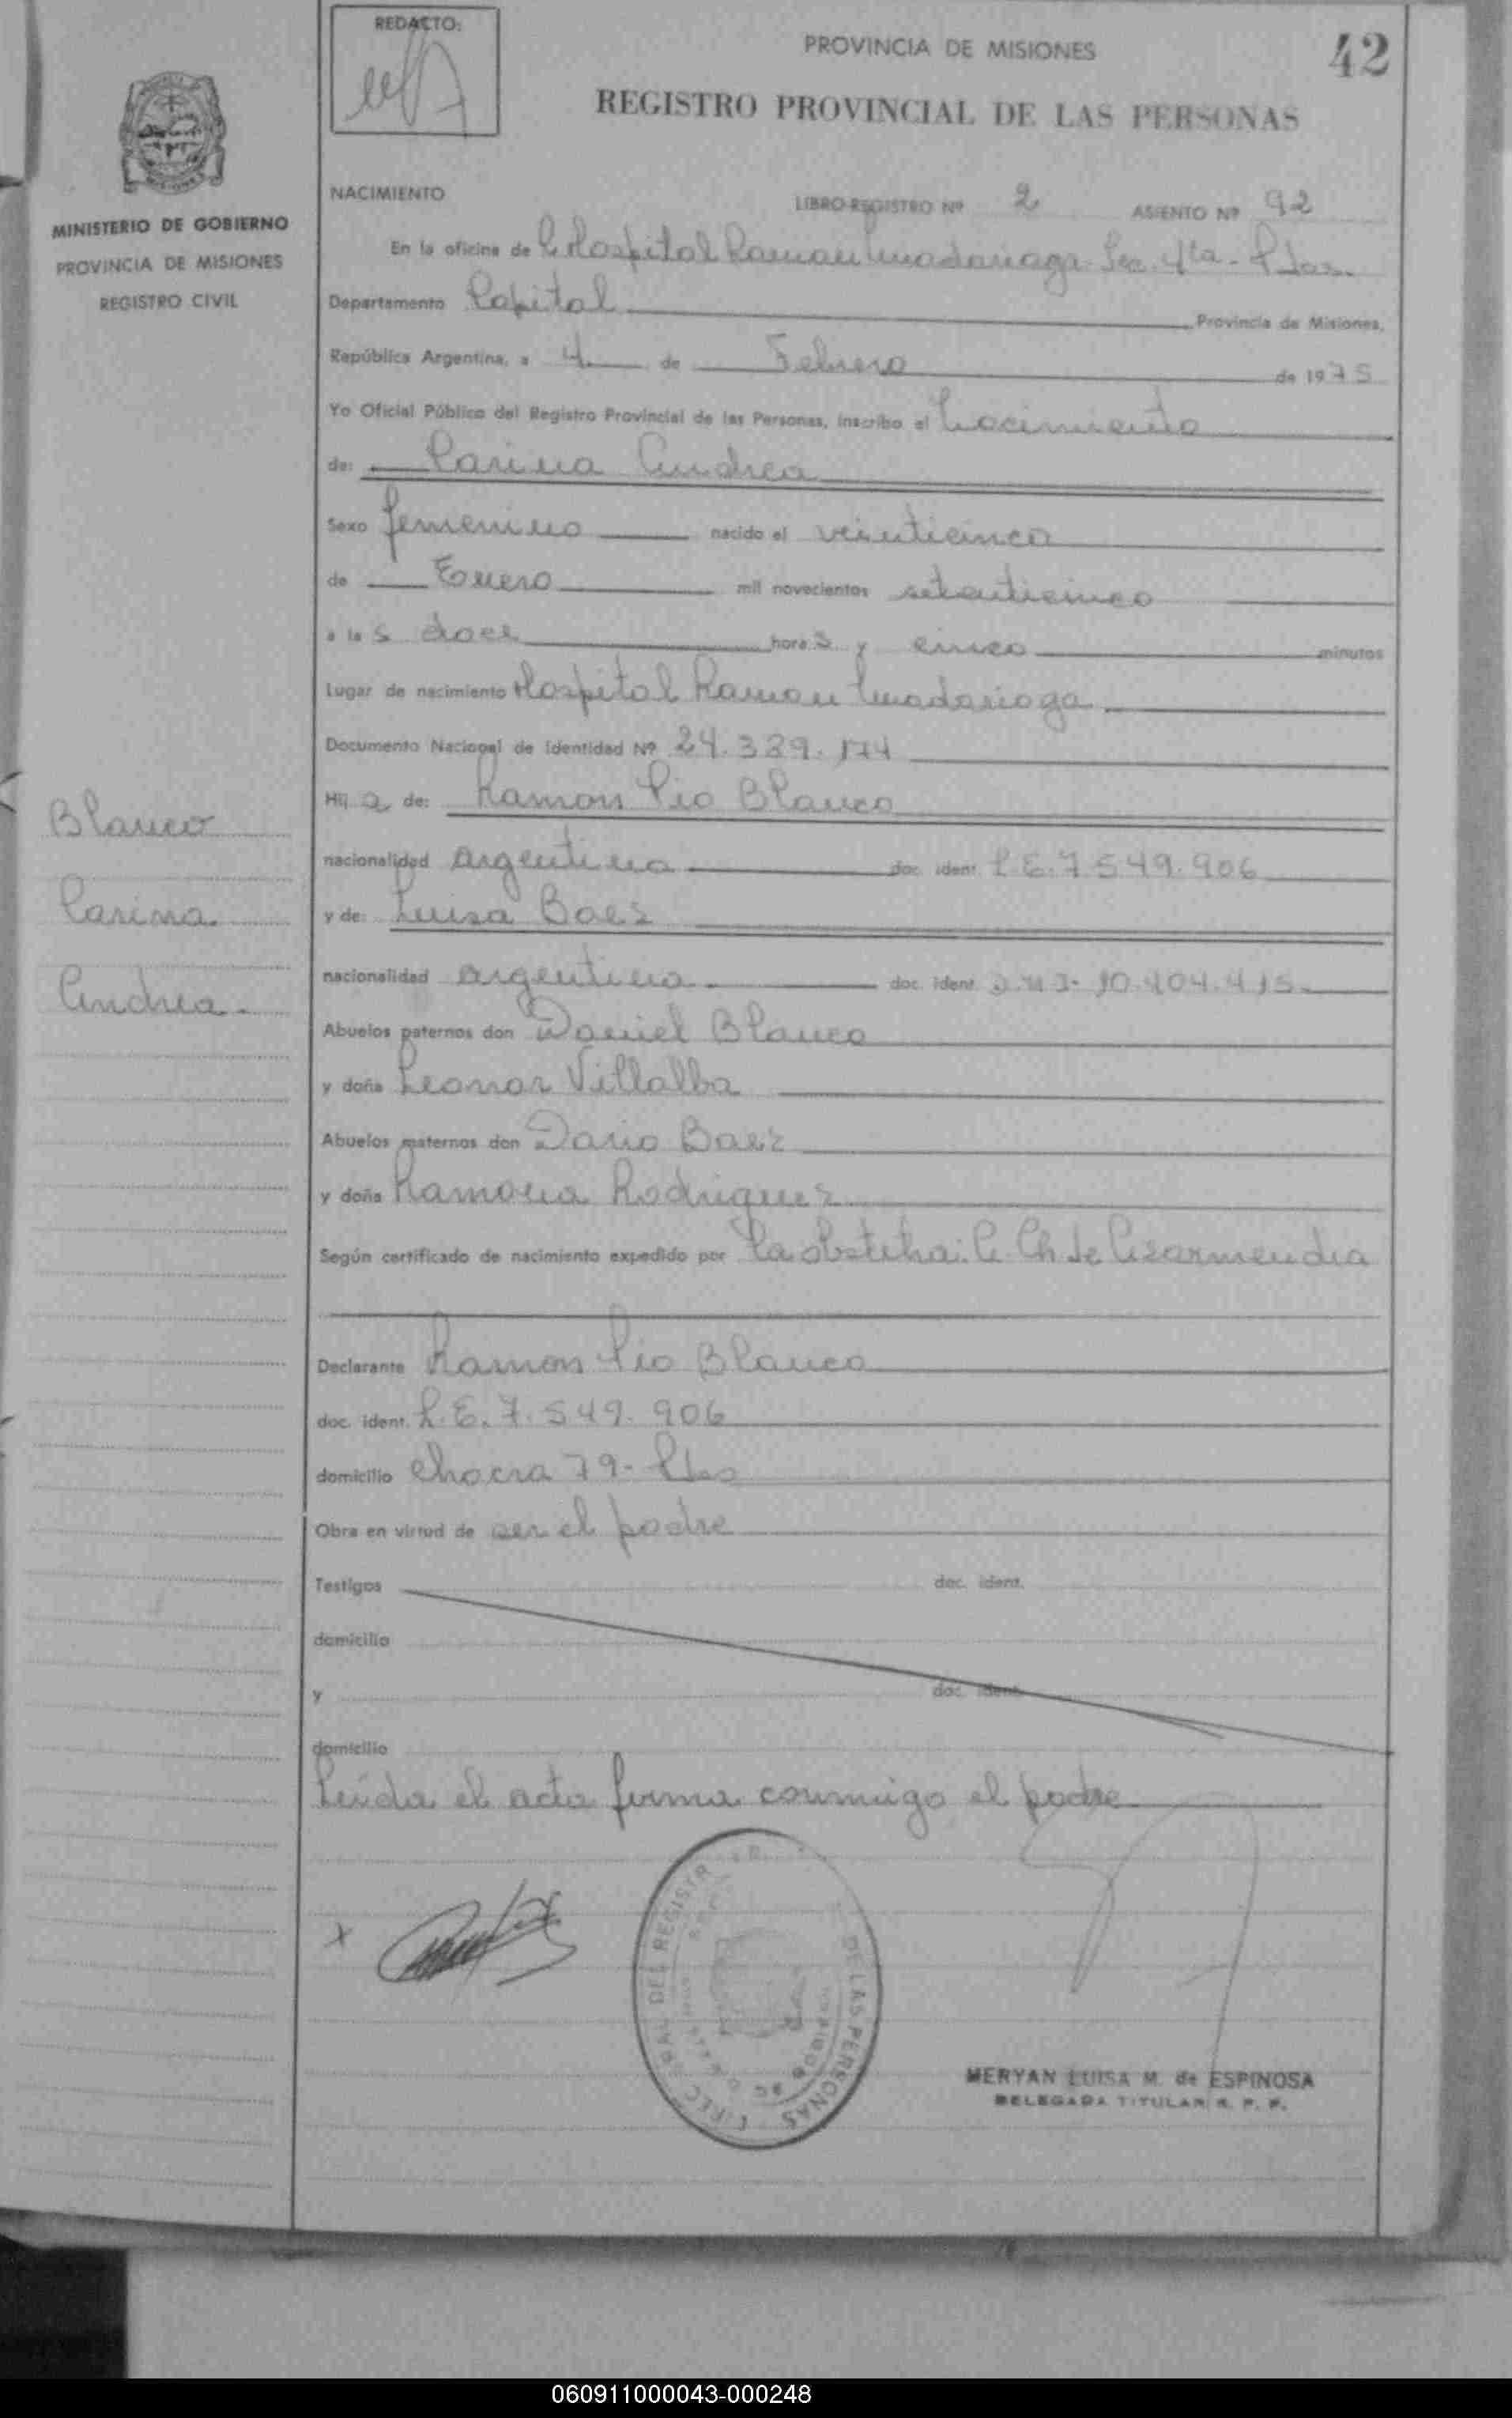 REDACTO:
PROVINCIA DE MISIONES
42
REGISTRO PROVINCIAL DE LAS PERSONAS
MINISTERIO DE GOBIERNO
PROVINCIA DE MISIONES
REGISTRO CIVIL
NACIMIENTO LIBRO-REGISTRO Nº 2 ASIENTO Nº 92
En la oficina de Hospital Ramon Madariaga Sec. 4ta - Pdas.
Departamento Capital Provincia de Misiones,
República Argentina, a 4 de Febrero de 1975
Yo Oficial Público del Registro Provincial de las Personas, inscribo el Nacimiento
de: Carina Andrea
Sexo femenino nacido el veinticinco
de Enero mil novecientos setenticinco
a las doce horas y cinco minutos
Lugar de nacimiento Hospital Ramon Madariaga
Documento Nacional de Identidad Nº 24.329.174
Hija de: Ramon Pio Blanco
nacionalidad argentina doc. ident. L.E. 7.549.906
y de: Luisa Baez
nacionalidad argentina. doc. ident. D.N.I. 10.404.415.
Abuelos paternos don Daniel Blanco
y doña Leonor Villalba
Abuelos maternos don Dario Baez
y doña Ramona Rodriguez
Según certificado de nacimiento expedido por La obstetra: C. Ch de Lizarmendia
Declarante Ramon Pio Blanco
doc. ident. L.E. 7.549.906
domicilio Chacra 79 - Pdas
Obra en virtud de ser el padre
Testigos doc. ident.
domicilio
y doc. ident.
domicilio
Leída el acta firma conmigo el padre
Blanco
Carina
Andrea.
x
DIREC GRAL DEL REGISTR DE LAS PERSONAS
MERYAN LUISA M. de ESPINOSA
DELEGADA TITULAR R. P. P.
060911000043-000248